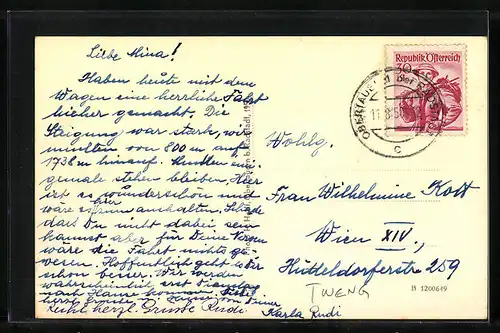 Liebe Mina!
Haben heute mit dem
Wagen eine herrliche Fahrt
hieher gemacht. Die
Steigung war stark, wir
mußten von 800 m auf
1738 m hinauf.
stehen bleiben, Hier
ist es wunderschön und
wäre zum hier anhalten. Schade
daß Du nicht dabei sein
kannst aber für Deine
wäre die Fahrt nichts ge-
wesen. Hoffentlich geht es Dir
schon besser. Wir werden
wahrscheinlich erst Dienstag
nach Hause kommen.
herzl. Grüße Rudi
Karla Rudi
Republik Österreich
OBERTAUERN
Wohlg.
Frau Wilhelmine
Wien XIV.,
Hütteldorferstr 259
TWENG
B 1200649